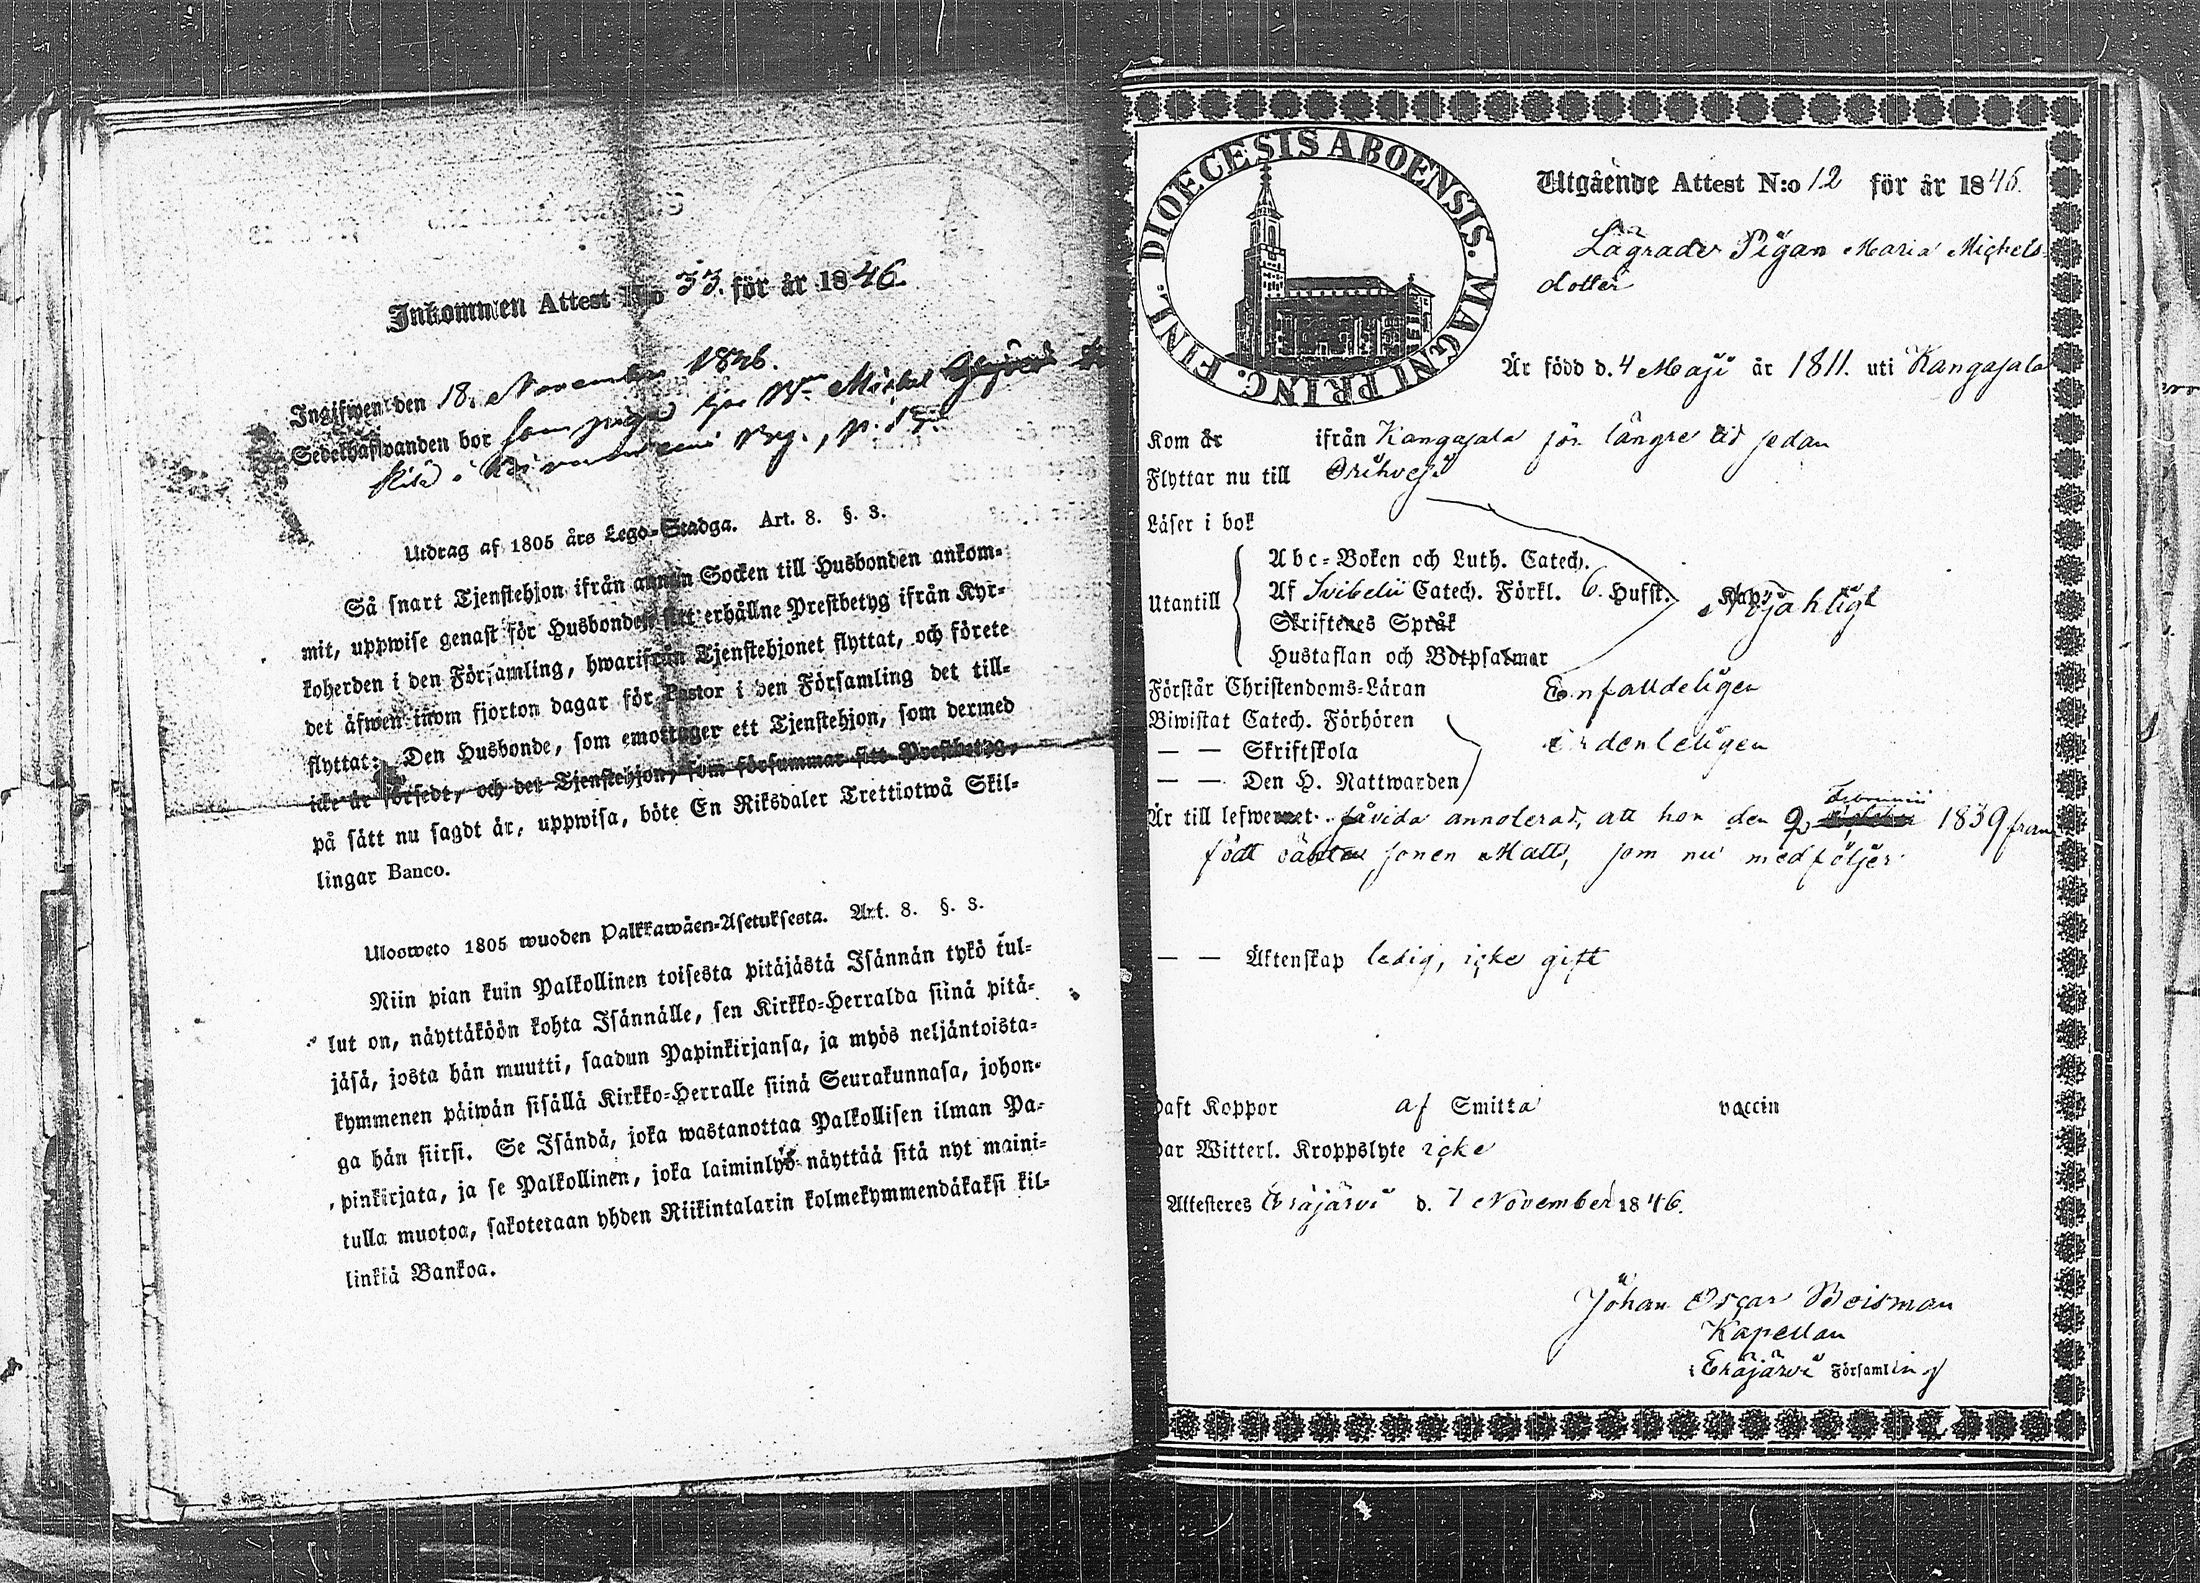 Inkommen Attest N:o 33. för år 1846.
Ingifwen den 18. November 1846.
Sedelhafwanden bor som piga hos Michel
i by., p.
Utdrag af 1805 års Lego-Stadga. Art. 8. §. 3.
Så snart Tjenstehjon ifrån annan Socken till Husbonden ankom-
mit, uppwise genast för Husbonden sitt erhållne Prestbetyg ifrån Kyr-
koherden i den Församling, hwarifrån Tjenstehjonet flyttat, och förete
det äfwen inom fjorton dagar för Pastor i den Församling det till-
flyttat: Den Husbonde, som emottager ett Tjenstehjon, som dermed
icke är försedt, och det Tjenstehjon, som försummar sitt Prestbetyg,
på sätt nu sagdt är, uppwisa, böte En Riksdaler Trettiotwå Skil-
lingar Banco.
Ulosweto 1805 wuoden Palkkawäen-Asetuksesta. Art. 8. §. 3.
Niin pian kuin Palkollinen toisesta pitäjästä Isännän tykö tul-
lut on, näyttäköön kohta Isännälle, sen Kirkko-Herralda siinä pitä-
jäsä, josta hän muutti, saadun Papinkirjansa, ja myös neljäntoista-
kymmenen päiwän sisällä Kirkko-Herralle siinä Seurakunnasa, johon-
ga hän siirsi. Se Isändä, joka wastanottaa Palkollisen ilman Pa-
pinkirjata, ja se Palkollinen, joka laiminlyö näyttää sitä nyt maini-
tulla muotoa, sakotetaan yhden Riikintalarin kolmekymmendäkaksi kil-
linkiä Bankoa.
DIOECESIS ABOENSIS. MAGNI PRINC. FINL.
Utgående Attest N:o 12 för år 1846.
Lägrade Pigan Maria Michels
dotter
Är född d. 4 Maji år 1811. uti Kangasala
Kom år ifrån Kangasala för längre tid sedan
Flyttar nu till Orihvesi
Läser i bok
Abc-Boken och Luth. Catech.
Utantill Af Svibelii Catech. Förkl. 6. Hufst. Kap.
Skriftenes Språk
Hustaflan och Botpsalmar
Förstår Christendoms-Läran Enfalldeligen
Biwistat Catech. Förhören
— — Skriftskola ordenteligen
— — Den H. Nattwarden
Februarii
Är till lefwernet såvida annoterad, att hon den 9 1839 fram
födt oäkta sonen Matts, som nu medföljer
— — Äktenskap ledig, icke gift
Haft Koppor af Smitta vaccin
Har Witterl. Kroppslyte icke
Attesteres Eräjärvi d. 7 November 1846.
Johan Oscar Beisman
Kapellan
i Eräjärvi Församling